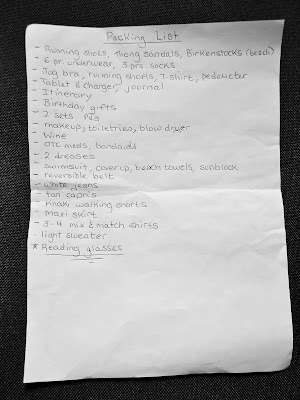 Packing List
- Running shoes, thong sandals, Birkenstocks (beach)
- 6 pr. underwear, 3 prs socks
- Jog bra, running shorts, T-shirt, pedometer
- Tablet & charger, journal
- Itinerary
- Birthday gifts
- 2 sets PJs
- makeup, toiletries, blow dryer
- Wine
- OTC meds, bandaids
- 2 dresses
- swimsuit, coverup, beach towels, sunblock
- reversible belt
- white jeans
- tan capris
- khaki walking shorts
- maxi skirt
- 3-4 mix & match shirts
- light sweater
* Reading glasses